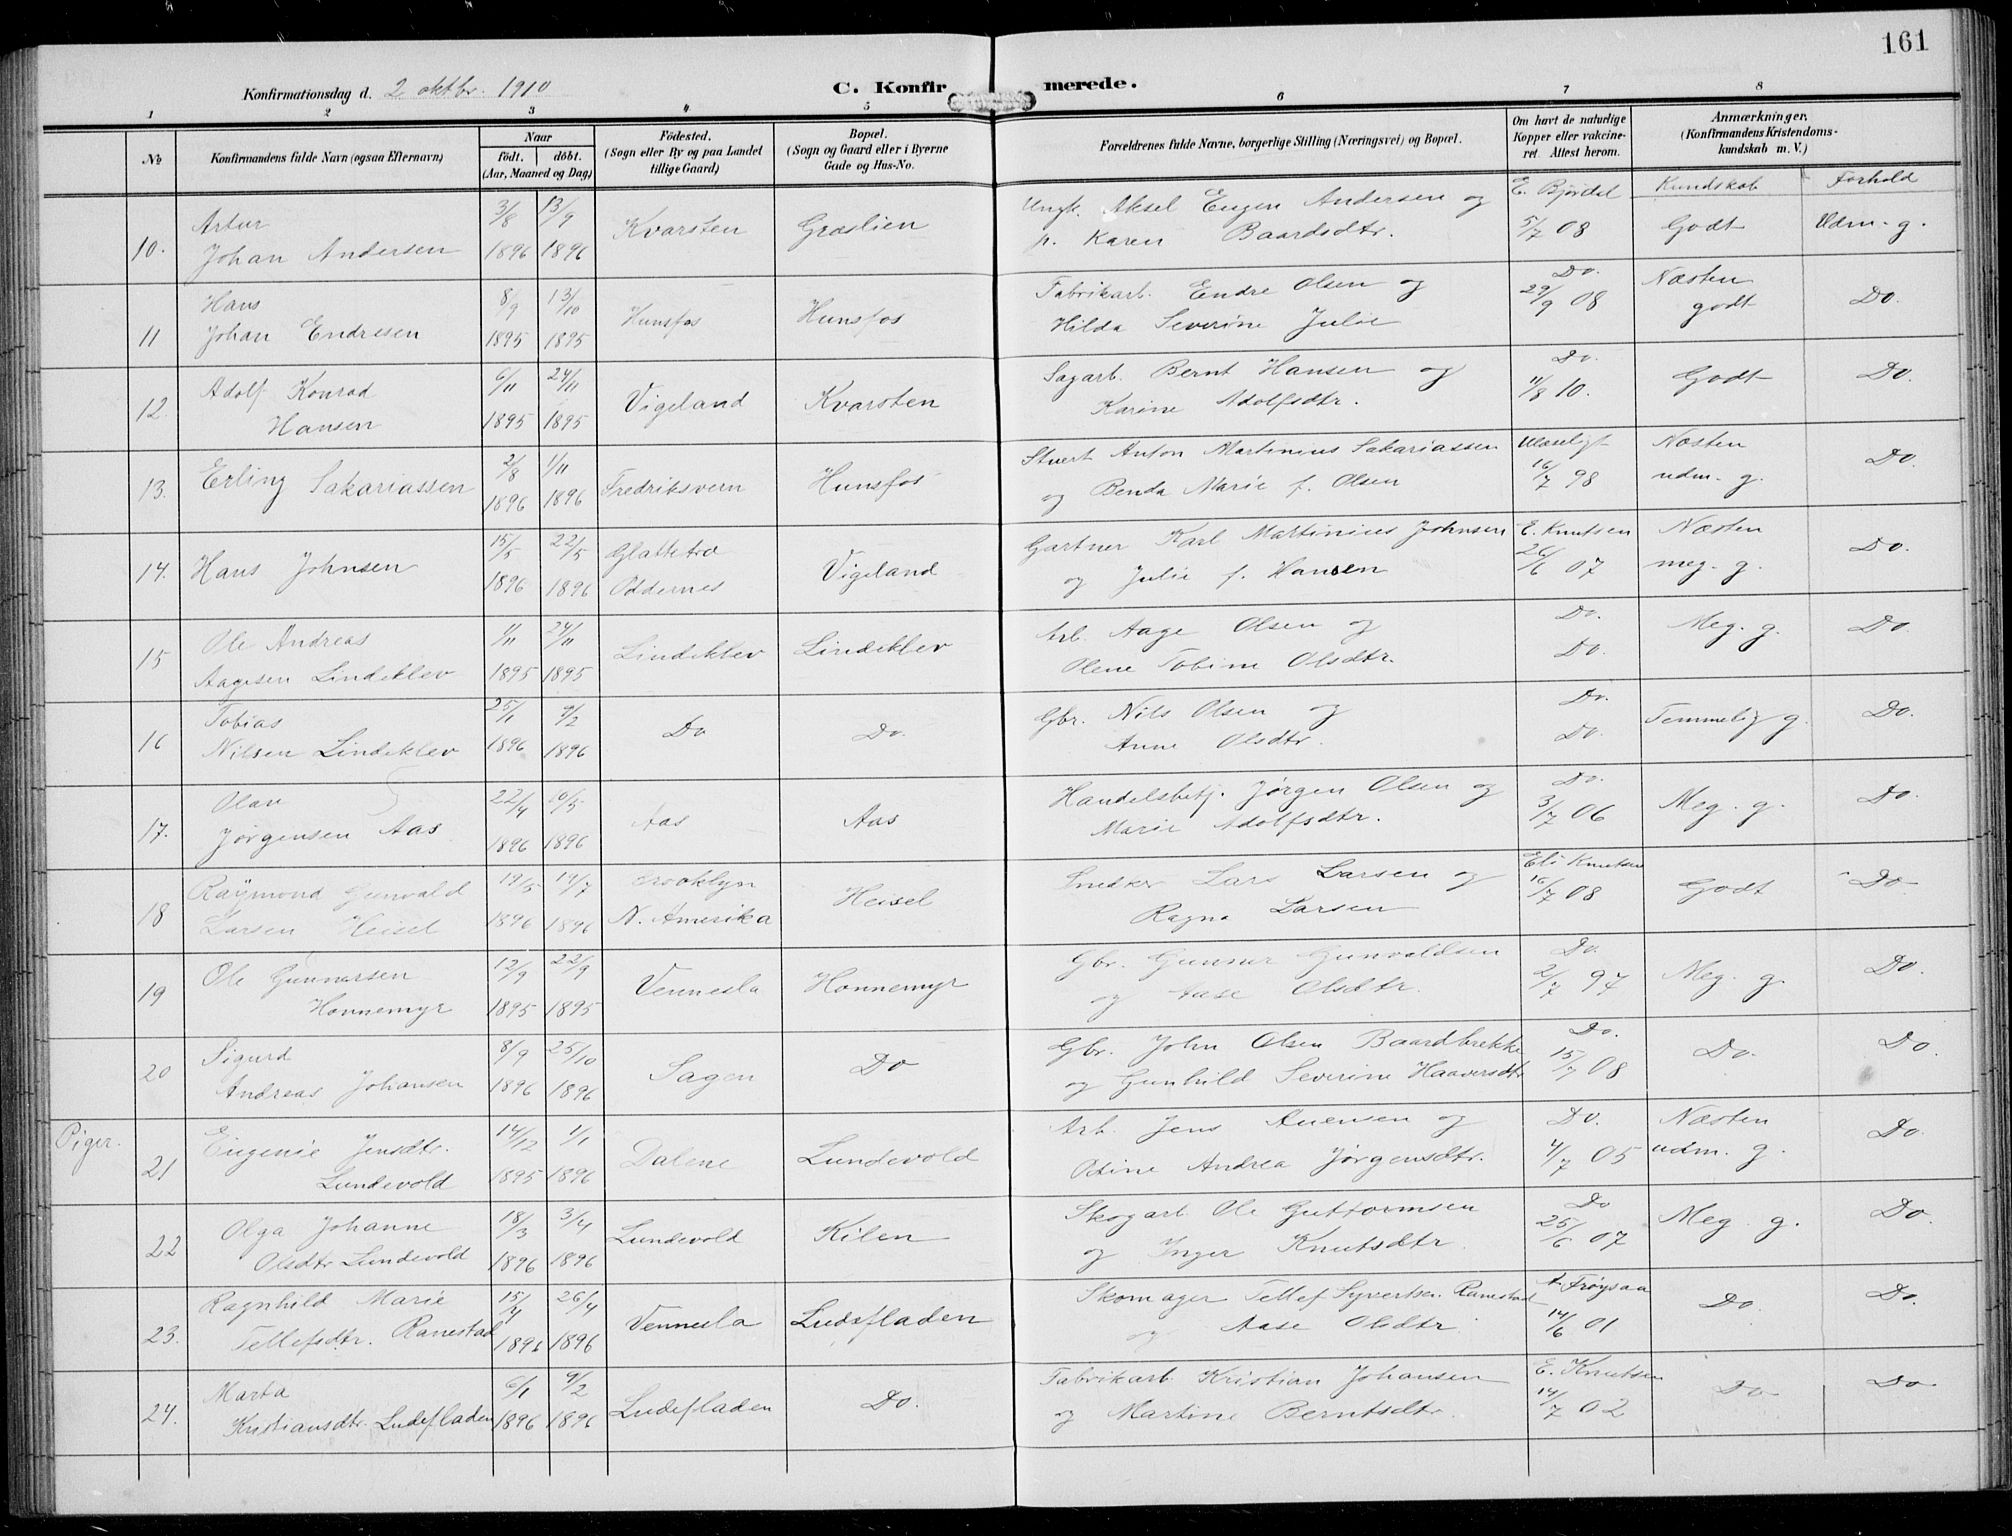 161
Konfirmationsdag d. 2 oktbr. 1910
C. Konfirmerede.
1 2 3 4 5 6 7 8
No
Konfirmandens fulde Navn (ogsaa Efternavn)
Naar
födt. döbt.
(Aar, Maaned og Dag)
Födested.
(Sogn eller By og paa Landet
tillige Gaard)
Bopæl.
(Sogn og Gaard eller i Byerne
Gade og Hus-No.
Forældrenes fulde Navne, borgerlige Stilling (Næringsvei) og Bopæl.
Om havt de naturlige
Kopper eller vakcine-
ret. Attest herom.
Anmærkninger.
(Konfirmandens Kristendoms-
kundskab m. V.)
Kundskab Forhold
Artur 3/8 13/9 Kvarsten Græslien Ungk. Aksel Eugen Andersen og E. Bjørdal
10. Johan Andersen 1896 1896 p. Karen Baardsdtr. 5/7 08 Godt Udm. g.
Hans 8/9 13/10 Hunsfos Hunsfos Fabrikarb. Endre Olsen og Do. Næsten
11 Johan Endresen 1895 1895 Hilda Severine Julie 29/9 08 godt Do.
Adolf Konrad 6/11 24/11 Vigeland Kvarsten Sagarb. Bernt Hansen og Do.
12. Hansen 1895 1895 Karine Adolfsdtr. 11/8 10. Godt Do.
13. Erling Sakariassen 2/8 1/11 Fredriksvern Hunsfos Stuert Anton Martinius Sakariassen Ulæseligt Næsten
1896 1896 og Benda Marie f. Olsen 16/7 98 udm. g. Do.
14. Hans Johnsen 15/5 22/5 Glattetra Vigeland Gartner Karl Martinius Johnsen E. Knutsen Næsten
1896 1896 Oddernes og Julie f. Hansen 26/6 07 meg. g. Do.
Ole Andreas 1/11 24/11 Lindeklev Lindeklev Arb. Aage Olsen og Do. Meg. g. Do.
15 Aagesen Lindeklev 1895 1895 Olene Tobine Olsdtr. Do.
Tobias 25/1 9/2 Do Do. Gbr. Nils Olsen og Do. Temmelig g. Do.
16 Nilsen Lindeklev 1896 1896 Anne Olsdtr. Do.
Olav 22/4 10/5 Aas Aas Handelsbetj. Jørgen Olsen og Do.
17. Jørgensen Aas 1896 1896 Marie Adolfsdtr. 3/7 06 Meg. g. Do.
Raymond Gunvald 19/5 19/7 Brooklyn Heisel Snedker Lars Larsen og Eli Knutsen
18 Larsen Heisel 1896 1896 N. Amerika Ragna Larsen 16/7 08 Godt Do
Ole Gunnarsen 12/9 22/9 Vennesla Honnemyr Gbr. Gunnar Gunvaldsen Do.
19 Honnemyr 1895 1895 og Aase Olsdtr. 2/7 97 Meg. g. Do.
Sigurd 8/9 25/10 Sagen Do Gbr. John Olsen Baardbrekke Do.
20 Andreas Johansen 1896 1896 og Gunhild Severine Haaversdtr 15/7 08 Do. Do.
Piger.
Eugenie Jensdtr. 14/12 1/1 Dalene Lundevold Arb. Jens Auensen og Do. Næsten
21 Lundevold 1895 1896 Odine Andrea Jørgensdtr. 4/7 05 udm. g. Do.
Olga Johanne 18/3 3/4 Lundevold Kilen Skogarb Ole Guttormsen Do
22 Olsdtr Lundevold 1896 1896 og Inger Knutsdtr. 25/6 07 Meg. g. Do.
Ragnhild Marie 15/4 26/4 Vennesla Ludefladen Skomager Tellef Syvertsen Ranestad Frøysaa
23. Tellefsdtr. Ranestad 1896 1896 og Aase Olsdtr. 14/6 01 Do. Do.
Marta 6/1 9/2 Ludefladen Do. Fabrikarb. Kristian Johansen E. Knutsen
24. Kristiansdtr. Ludefladen 1896 1896 og Martine Berntsdtr. 14/7 02 Do Do